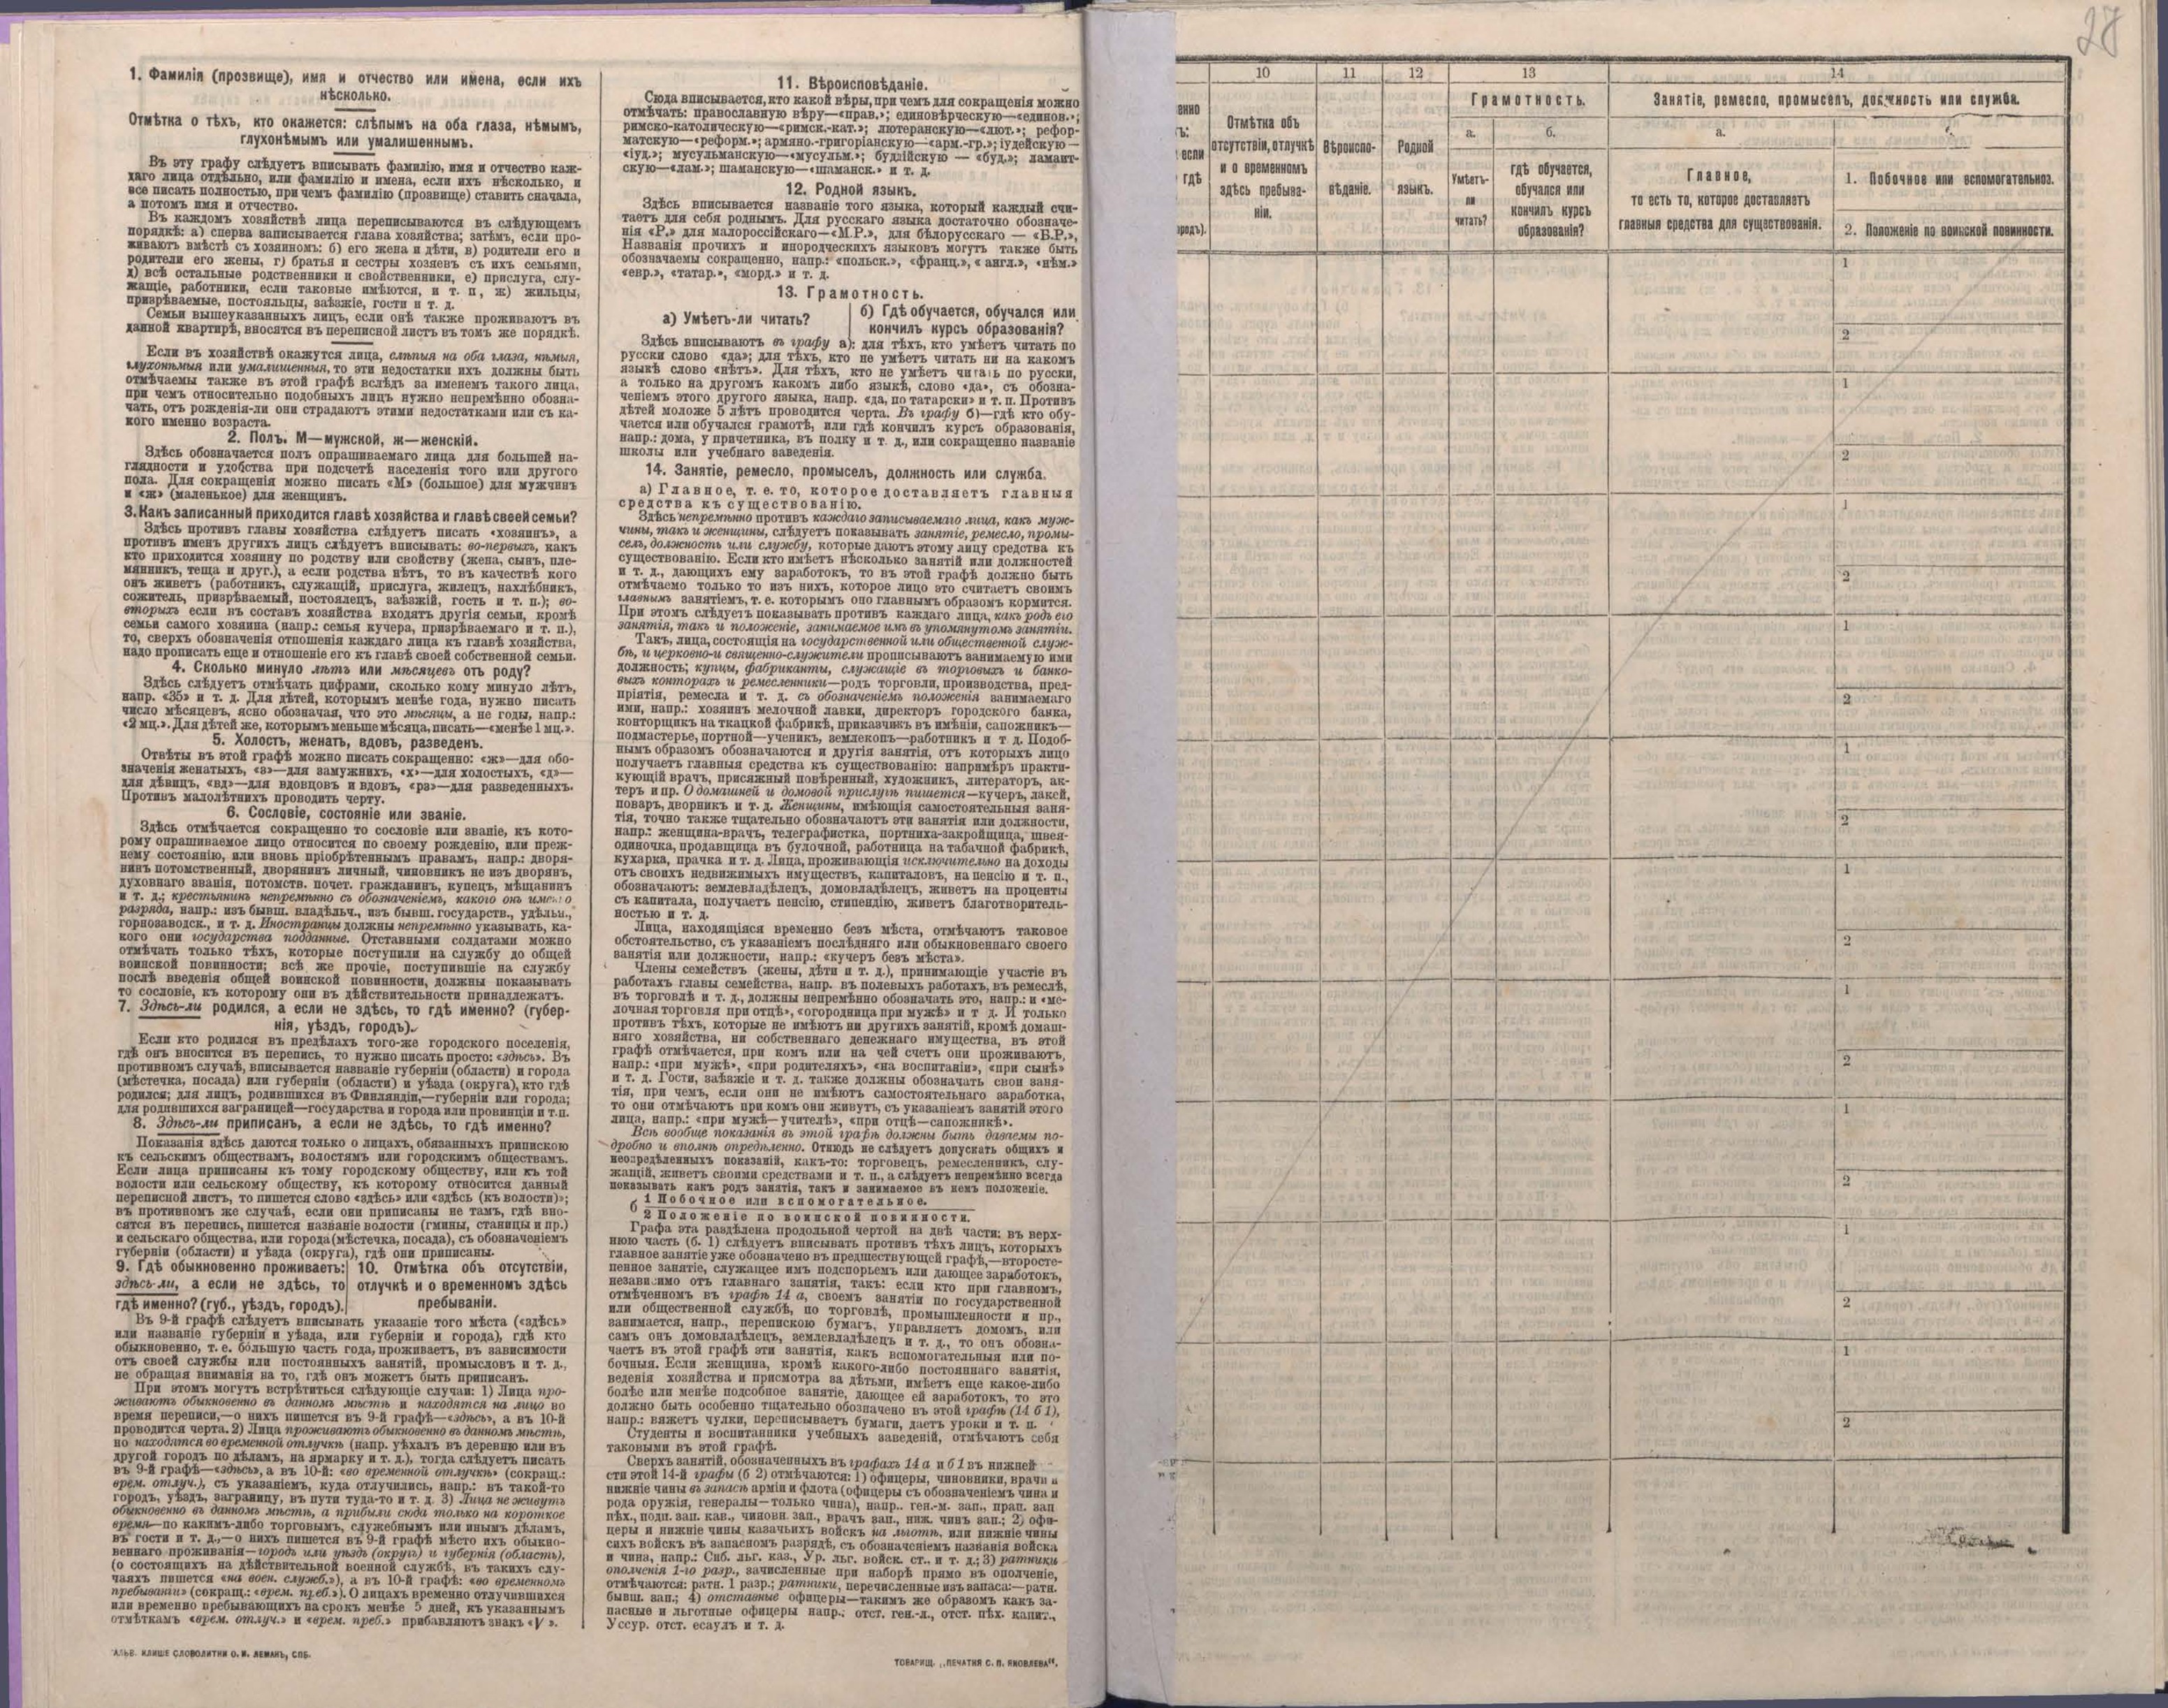 1. Фамилія (прозвище), имя и отчество или имена, если ихъ
нѣсколько.
Отмѣтка о тѣхъ, кто окажется: слѣпымъ на оба глаза, нѣмымъ,
глухонѣмымъ или умалишеннымъ.
Въ эту графу слѣдуетъ вписывать фамилію, имя и отчество каж-
даго лица отдѣльно, или фамилію и имена, если ихъ нѣсколько, и
все писать полностью, при чемъ фамилію (прозвище) ставить сначала,
а потомъ имя и отчество.
Въ каждомъ хозяйствѣ лица переписываются въ слѣдующемъ
порядкѣ: а) сперва записывается глава хозяйства; затѣмъ, если про-
живаютъ вмѣстѣ съ хозяиномъ: б) его жена и дѣти, в) родители его и
родители его жены, г) братья и сестры хозяевъ съ ихъ семьями,
д) всѣ остальные родственники и свойственники, е) прислуга, слу-
жащіе, работники, если таковые имѣются, и т. п, ж) жильцы,
призрѣваемые, постояльцы, заѣзжіе, гости и т. д.
Семьи вышеуказанныхъ лицъ, если онѣ также проживаютъ въ
данной квартирѣ, вносятся въ переписной листъ въ томъ же порядкѣ.
Если въ хозяйствѣ окажутся лица, слѣпыя на оба глаза, нѣмыя,
глухонѣмыя или умалишенныя, то эти недостатки ихъ должны быть
отмѣчаемы также въ этой графѣ вслѣдъ за именемъ такого лица,
при чемъ относительно подобныхъ лицъ нужно непремѣнно обозна-
чать, отъ рожденія-ли они страдаютъ этими недостатками или съ ка-
кого именно возраста.
2. Полъ. М—мужской, ж—женскій.
Здѣсь обозначается полъ опрашиваемаго лица для большей на-
глядности и удобства при подсчетѣ населенія того или другого
пола. Для сокращенія можно писать «М» (большое) для мужчинъ
и «ж» (маленькое) для женщинъ.
3. Какъ записанный приходится главѣ хозяйства и главѣ своей семьи?
Здѣсь противъ главы хозяйства слѣдуетъ писать «хозяинъ», а
противъ именъ другихъ лицъ слѣдуетъ вписывать: во-первыхъ, какъ
кто приходится хозяину по родству или свойству (жена, сынъ, пле-
мянникъ, теща и друг.), а если родства нѣтъ, то въ качествѣ кого
онъ живетъ (работникъ, служащій, прислуга, жилецъ, нахлѣбникъ,
сожитель, призрѣваемый, постоялецъ, заѣзжій, гость и т. п.); во-
вторыхъ если въ составъ хозяйства входятъ другія семьи, кромѣ
семьи самого хозяина (напр.: семья кучера, призрѣваемаго и т. п.),
то, сверхъ обозначенія отношенія каждаго лица къ главѣ хозяйства,
надо прописать еще и отношеніе его къ главѣ своей собственной семьи.
4. Сколько минуло лѣтъ или мѣсяцевъ отъ роду?
Здѣсь слѣдуетъ отмѣчать цифрами, сколько кому минуло лѣтъ,
напр. «35» и т. д. Для дѣтей, которымъ менѣе года, нужно писать
число мѣсяцевъ, ясно обозначая, что это мѣсяцы, а не годы, напр.:
«2 мц.». Для дѣтей же, которымъ меньше мѣсяца, писать—«менѣе 1 мц.».
5. Холостъ, женатъ, вдовъ, разведенъ.
Отвѣты въ этой графѣ можно писать сокращенно: «ж»—для обо-
значенія женатыхъ, «з»—для замужнихъ, «х»—для холостыхъ, «д»—
для дѣвицъ, «вд»—для вдовцовъ и вдовъ, «рз»—для разведенныхъ.
Противъ малолѣтнихъ проводить черту.
6. Сословіе, состояніе или званіе.
Здѣсь отмѣчается сокращенно то сословіе или званіе, къ кото-
рому опрашиваемое лицо относится по своему рожденію, или преж-
нему состоянію, или вновь пріобрѣтеннымъ правамъ, напр.: дворя-
нинъ потомственный, дворянинъ личный, чиновникъ не изъ дворянъ,
духовнаго званія, потомств. почет. гражданинъ, купецъ, мѣщанинъ
и т. д.; крестьянинъ непремѣнно съ обозначеніемъ, какого онъ именно
разряда, напр.: изъ бывш. владѣльч., изъ бывш. государств., удѣльн.,
горнозаводск., и т. д. Иностранцы должны непремѣнно указывать, ка-
кого они государства подданные. Отставными солдатами можно
отмѣчать только тѣхъ, которые поступили на службу до общей
воинской повинности; всѣ же прочіе, поступившіе на службу
послѣ введенія общей воинской повинности, должны показывать
то сословіе, къ которому они въ дѣйствительности принадлежатъ.
7. Здѣсь-ли родился, а если не здѣсь, то гдѣ именно? (губер-
нія, уѣздъ, городъ).
Если кто родился въ предѣлахъ того-же городского поселенія,
гдѣ онъ вносится въ перепись, то нужно писать просто: «здѣсь». Въ
противномъ случаѣ, вписывается названіе губерніи (области) и города
(мѣстечка, посада) или губерніи (области) и уѣзда (округа), кто гдѣ
родился; для лицъ, родившихся въ Финляндіи,—губерніи или города;
для родившихся заграницей—государства и города или провинціи и т.п.
8. Здѣсь-ли приписанъ, а если не здѣсь, то гдѣ именно?
Показанія здѣсь даются только о лицахъ, обязанныхъ припискою
къ сельскимъ обществамъ, волостямъ или городскимъ обществамъ.
Если лица приписаны къ тому городскому обществу, или къ той
волости или сельскому обществу, къ которому относится данный
переписной листъ, то пишется слово «здѣсь» или «здѣсь (къ волости)»;
въ противномъ же случаѣ, если они приписаны не тамъ, гдѣ вно-
сятся въ перепись, пишется названіе волости (гмины, станицы и пр.)
и сельскаго общества, или города (мѣстечка, посада), съ обозначеніемъ
губерніи (области) и уѣзда (округа), гдѣ они приписаны.
9. Гдѣ обыкновенно проживаетъ:
здѣсь-ли, а если не здѣсь, то
гдѣ именно? (губ., уѣздъ, городъ).
10. Отмѣтка объ отсутствіи,
отлучкѣ и о временномъ здѣсь
пребываніи.
Въ 9-й графѣ слѣдуетъ вписывать указаніе того мѣста («здѣсь»
или названіе губерніи и уѣзда, или губерніи и города), гдѣ кто
обыкновенно, т. е. бо́льшую часть года, проживаетъ, въ зависимости
отъ своей службы или постоянныхъ занятій, промысловъ и т. д.,
не обращая вниманія на то, гдѣ онъ можетъ быть приписанъ.
При этомъ могутъ встрѣтиться слѣдующіе случаи: 1) Лица про-
живаютъ обыкновенно въ данномъ мѣстѣ и находятся на лицо во
время переписи,—о нихъ пишется въ 9-й графѣ—«здѣсь», а въ 10-й
проводится черта. 2) Лица проживаютъ обыкновенно въ данномъ мѣстѣ,
но находятся во временной отлучкѣ (напр. уѣхалъ въ деревню или въ
другой городъ по дѣламъ, на ярмарку и т. д.), тогда слѣдуетъ писать
въ 9-й графѣ—«здѣсь», а въ 10-й: «во временной отлучкѣ» (сокращ.:
врем. отлуч.), съ указаніемъ, куда отлучились, напр.: въ такой-то
городъ, уѣздъ, заграницу, въ пути туда-то и т. д. 3) Лица не живутъ
обыкновенно въ данномъ мѣстѣ, а прибыли сюда только на короткое
время—по какимъ-либо торговымъ, служебнымъ или инымъ дѣламъ,
въ гости и т. д.,—о нихъ пишется въ 9-й графѣ мѣсто ихъ обыкно-
веннаго проживанія—городъ или уѣздъ (округъ) и губернія (область),
(о состоящихъ на дѣйствительной военной службѣ, въ такихъ слу-
чаяхъ пишется «на воен. служб.»), а въ 10-й графѣ: «во временномъ
пребываніи» (сокращ.: «врем. преб.»). О лицахъ временно отлучившихся
или временно пребывающихъ на срокъ менѣе 5 дней, къ указаннымъ
отмѣткамъ «врем. отлуч.» и «врем. преб.» прибавляютъ знакъ «V».
АЛЬВ. КЛИШЕ СЛОВОЛИТНИ О. И. ЛЕМАНЪ, СПБ.
11. Вѣроисповѣданіе.
Сюда вписывается, кто какой вѣры, при чемъ для сокращенія можно
отмѣчать: православную вѣру—«прав.»; единовѣрческую—«единов.»;
римско-католическую—«римск.-кат.»; лютеранскую—«лют.»; рефор-
матскую—«реформ.»; армяно.-григоріанскую—«арм.-гр.»; іудейскую—
«іуд.»; мусульманскую—«мусульм.»; буддійскую — «буд.»; ламаит-
скую—«лам.»; шаманскую—«шаманск.» и т. д.
12. Родной языкъ.
Здѣсь вписывается названіе того языка, который каждый счи-
таетъ для себя роднымъ. Для русскаго языка достаточно обозначе-
нія «Р.» для малороссійскаго—«М.Р.», для бѣлорусскаго — «Б.Р.»,
Названія прочихъ и инородческихъ языковъ могутъ также быть
обозначаемы сокращенно, напр.: «польск.», «франц.», « англ.», «нѣм.»
«евр.», «татар.», «морд.» и т. д.
13. Грамотность.
а) Умѣетъ-ли читать?
б) Гдѣ обучается, обучался или
кончилъ курсъ образованія?
Здѣсь вписываютъ въ графу а): для тѣхъ, кто умѣетъ читать по
русски слово «да»; для тѣхъ, кто не умѣетъ читать ни на какомъ
языкѣ слово «нѣтъ». Для тѣхъ, кто не умѣетъ читать по русски,
а только на другомъ какомъ либо языкѣ, слово «да», съ обозна-
ченіемъ этого другого языка, напр. «да, по татарски» и т. п. Противъ
дѣтей моложе 5 лѣтъ проводится черта. Въ графу б)—гдѣ кто обу-
чается или обучался грамотѣ, или гдѣ кончилъ курсъ образованія,
напр.: дома, у причетника, въ полку и т. д., или сокращенно названіе
школы или учебнаго заведенія.
14. Занятіе, ремесло, промыселъ, должность или служба.
а) Главное, т. е. то, которое доставляетъ главныя
средства къ существованію.
Здѣсь непремѣнно противъ каждаго записываемаго лица, какъ муж-
чины, такъ и женщины, слѣдуетъ показывать занятіе, ремесло, промы-
селъ, должность или службу, которые даютъ этому лицу средства къ
существованію. Если кто имѣетъ нѣсколько занятій или должностей
и т. д., дающихъ ему заработокъ, то въ этой графѣ должно быть
отмѣчаемо только то изъ нихъ, которое лицо это считаетъ своимъ
главнымъ занятіемъ, т. е. которымъ оно главнымъ образомъ кормится.
При этомъ слѣдуетъ показывать противъ каждаго лица, какъ родъ его
занятія, такъ и положеніе, занимаемое имъ въ упомянутомъ занятіи.
Такъ, лица, состоящія на государственной или общественной служ-
бѣ, и церковно-и священно-служители прописываютъ занимаемую ими
должность; купцы, фабриканты, служащіе въ торговыхъ и банко-
выхъ конторахъ и ремесленники—родъ торговли, производства, пред-
пріятія, ремесла и т. д. съ обозначеніемъ положенія занимаемаго
ими, напр.: хозяинъ мелочной лавки, директоръ городского банка,
конторщикъ на ткацкой фабрикѣ, приказчикъ въ имѣніи, сапожникъ—
подмастерье, портной—ученикъ, землекопъ—работникъ и т. д. Подоб-
нымъ образомъ обозначаются и другія занятія, отъ которыхъ лицо
получаетъ главныя средства къ существованію: напримѣръ практи-
кующій врачъ, присяжный повѣренный, художникъ, литераторъ, ак-
теръ и пр. О домашней и домовой прислугѣ пишется—кучеръ, лакей,
поваръ, дворникъ и т. д. Женщины, имѣющія самостоятельныя заня-
тія, точно также тщательно обозначаютъ эти занятія или должности,
напр.: женщина-врачъ, телеграфистка, портниха-закройщица, швея-
одиночка, продавщица въ булочной, работница на табачной фабрикѣ,
кухарка, прачка и т. д. Лица, проживающія исключительно на доходы
отъ своихъ недвижимыхъ имуществъ, капиталовъ, на пенсію и т. п.,
обозначаютъ: землевладѣлецъ, домовладѣлецъ, живетъ на проценты
съ капитала, получаетъ пенсію, стипендію, живетъ благотворитель-
ностью и т. д.
Лица, находящіяся временно безъ мѣста, отмѣчаютъ таковое
обстоятельство, съ указаніемъ послѣдняго или обыкновеннаго своего
занятія или должности, напр.: «кучеръ безъ мѣста».
Члены семействъ (жены, дѣти и т. д.), принимающіе участіе въ
работахъ главы семейства, напр. въ полевыхъ работахъ, въ ремеслѣ,
въ торговлѣ и т. д., должны непремѣнно обозначать это, напр.: и «ме-
лочная торговля при отцѣ», «огородница при мужѣ» и т д. И только
противъ тѣхъ, которые не имѣютъ ни другихъ занятій, кромѣ домаш-
няго хозяйства, ни собственнаго денежнаго имущества, въ этой
графѣ отмѣчается, при комъ или на чей счетъ они проживаютъ,
напр.: «при мужѣ», «при родителяхъ», «на воспитаніи», «при сынѣ»
и т. д. Гости, заѣзжіе и т. д. также должны обозначать свои заня-
тія, при чемъ, если они не имѣютъ самостоятельнаго заработка,
то они отмѣчаютъ при комъ они живутъ, съ указаніемъ занятій этого
лица, напр.: «при мужѣ—учителѣ», «при отцѣ—сапожникѣ».
Всѣ вообще показанія въ этой графѣ должны быть даваемы по-
дробно и вполнѣ опредѣленно. Отнюдь не слѣдуетъ допускать общихъ и
неопредѣленныхъ показаній, какъ-то: торговецъ, ремесленникъ, слу-
жащій, живетъ своими средствами и т. п., а слѣдуетъ непремѣнно всегда
показывать какъ родъ занятія, такъ и занимаемое въ немъ положеніе.
б
1 Побочное или вспомогательное.
2 Положеніе по воинской повинности.
Графа эта раздѣлена продольной чертой на двѣ части: въ верх-
нюю часть (б. 1) слѣдуетъ вписывать противъ тѣхъ лицъ, которыхъ
главное занятіе уже обозначено въ предшествующей графѣ,—второсте-
пенное занятіе, служащее имъ подспорьемъ или дающее заработокъ,
независимо отъ главнаго занятія, такъ: если кто при главномъ,
отмѣченномъ въ графѣ 14 а, своемъ занятіи по государственной
или общественной службѣ, по торговлѣ, промышленности и пр.,
занимается, напр., перепискою бумагъ, управляетъ домомъ, или
самъ онъ домовладѣлецъ, землевладѣлецъ и т. д., то онъ обозна-
чаетъ въ этой графѣ эти занятія, какъ вспомогательныя или по-
бочныя. Если женщина, кромѣ какого-либо постояннаго занятія,
веденія хозяйства и присмотра за дѣтьми, имѣетъ еще какое-либо
болѣе или менѣе подсобное занятіе, дающее ей заработокъ, то это
должно быть особенно тщательно обозначено въ этой графѣ (14 б 1),
напр.: вяжетъ чулки, переписываетъ бумаги, даетъ уроки и т. п.
Студенты и воспитанники учебныхъ заведеній, отмѣчаютъ себя
таковыми въ этой графѣ.
Сверхъ занятій, обозначенныхъ въ графахъ 14 а и б 1 въ нижней
сти этой 14-й графы (б 2) отмѣчаются: 1) офицеры, чиновники, врачи и
нижніе чины въ запасѣ арміи и флота (офицеры съ обозначеніемъ чина и
рода оружія, генералы—только чина), напр.. ген.-м. зап., прап. зап
пѣх., подп. зап. кав., чиновн. зап., врачъ зап., ниж. чинъ зап.; 2) офи-
церы и нижніе чины казачьихъ войскъ на льготѣ, или нижніе чины
сихъ войскъ въ запасномъ разрядѣ, съ обозначеніемъ названія войска
и чина, напр.: Сиб. льг. каз., Ур. льг. войск. ст., и т. д.; 3) ратники
ополченія 1-го разр., зачисленные при наборѣ прямо въ ополченіе,
отмѣчаются: ратн. 1 разр.; ратники, перечисленные изъ запаса:—ратн.
бывш. зап.; 4) отставные офицеры—такимъ же образомъ какъ за-
пасные и льготные офицеры напр.: отст. ген.-л., отст. пѣх. капит.,
Уссур. отст. есаулъ и т. д.
ТОВАРИЩ. „ПЕЧАТНЯ С. П. ЯКОВЛЕВА“.
10 11 12 13 14
енно
ъ:
если
гдѣ
ородъ).
Отмѣтка объ
отсутствіи, отлучкѣ
и о временномъ
здѣсь пребыва-
ніи.
Вѣроиспо-
вѣданіе.
Родной
языкъ.
Грамотность.
а.
Умѣетъ-
ли
читать?
б.
гдѣ обучается,
обучался или
кончилъ курсъ
образованія?
Занятіе, ремесло, промыселъ, должность или служба.
а.
Главное,
то есть то, которое доставляетъ
главныя средства для существованія.
б.
1. Побочное или вспомогательное.
2. Положеніе по воинской повинности.
1
2
1
2
1
2
1
2
1
2
1
2
1
2
1
2
1
2
1
2